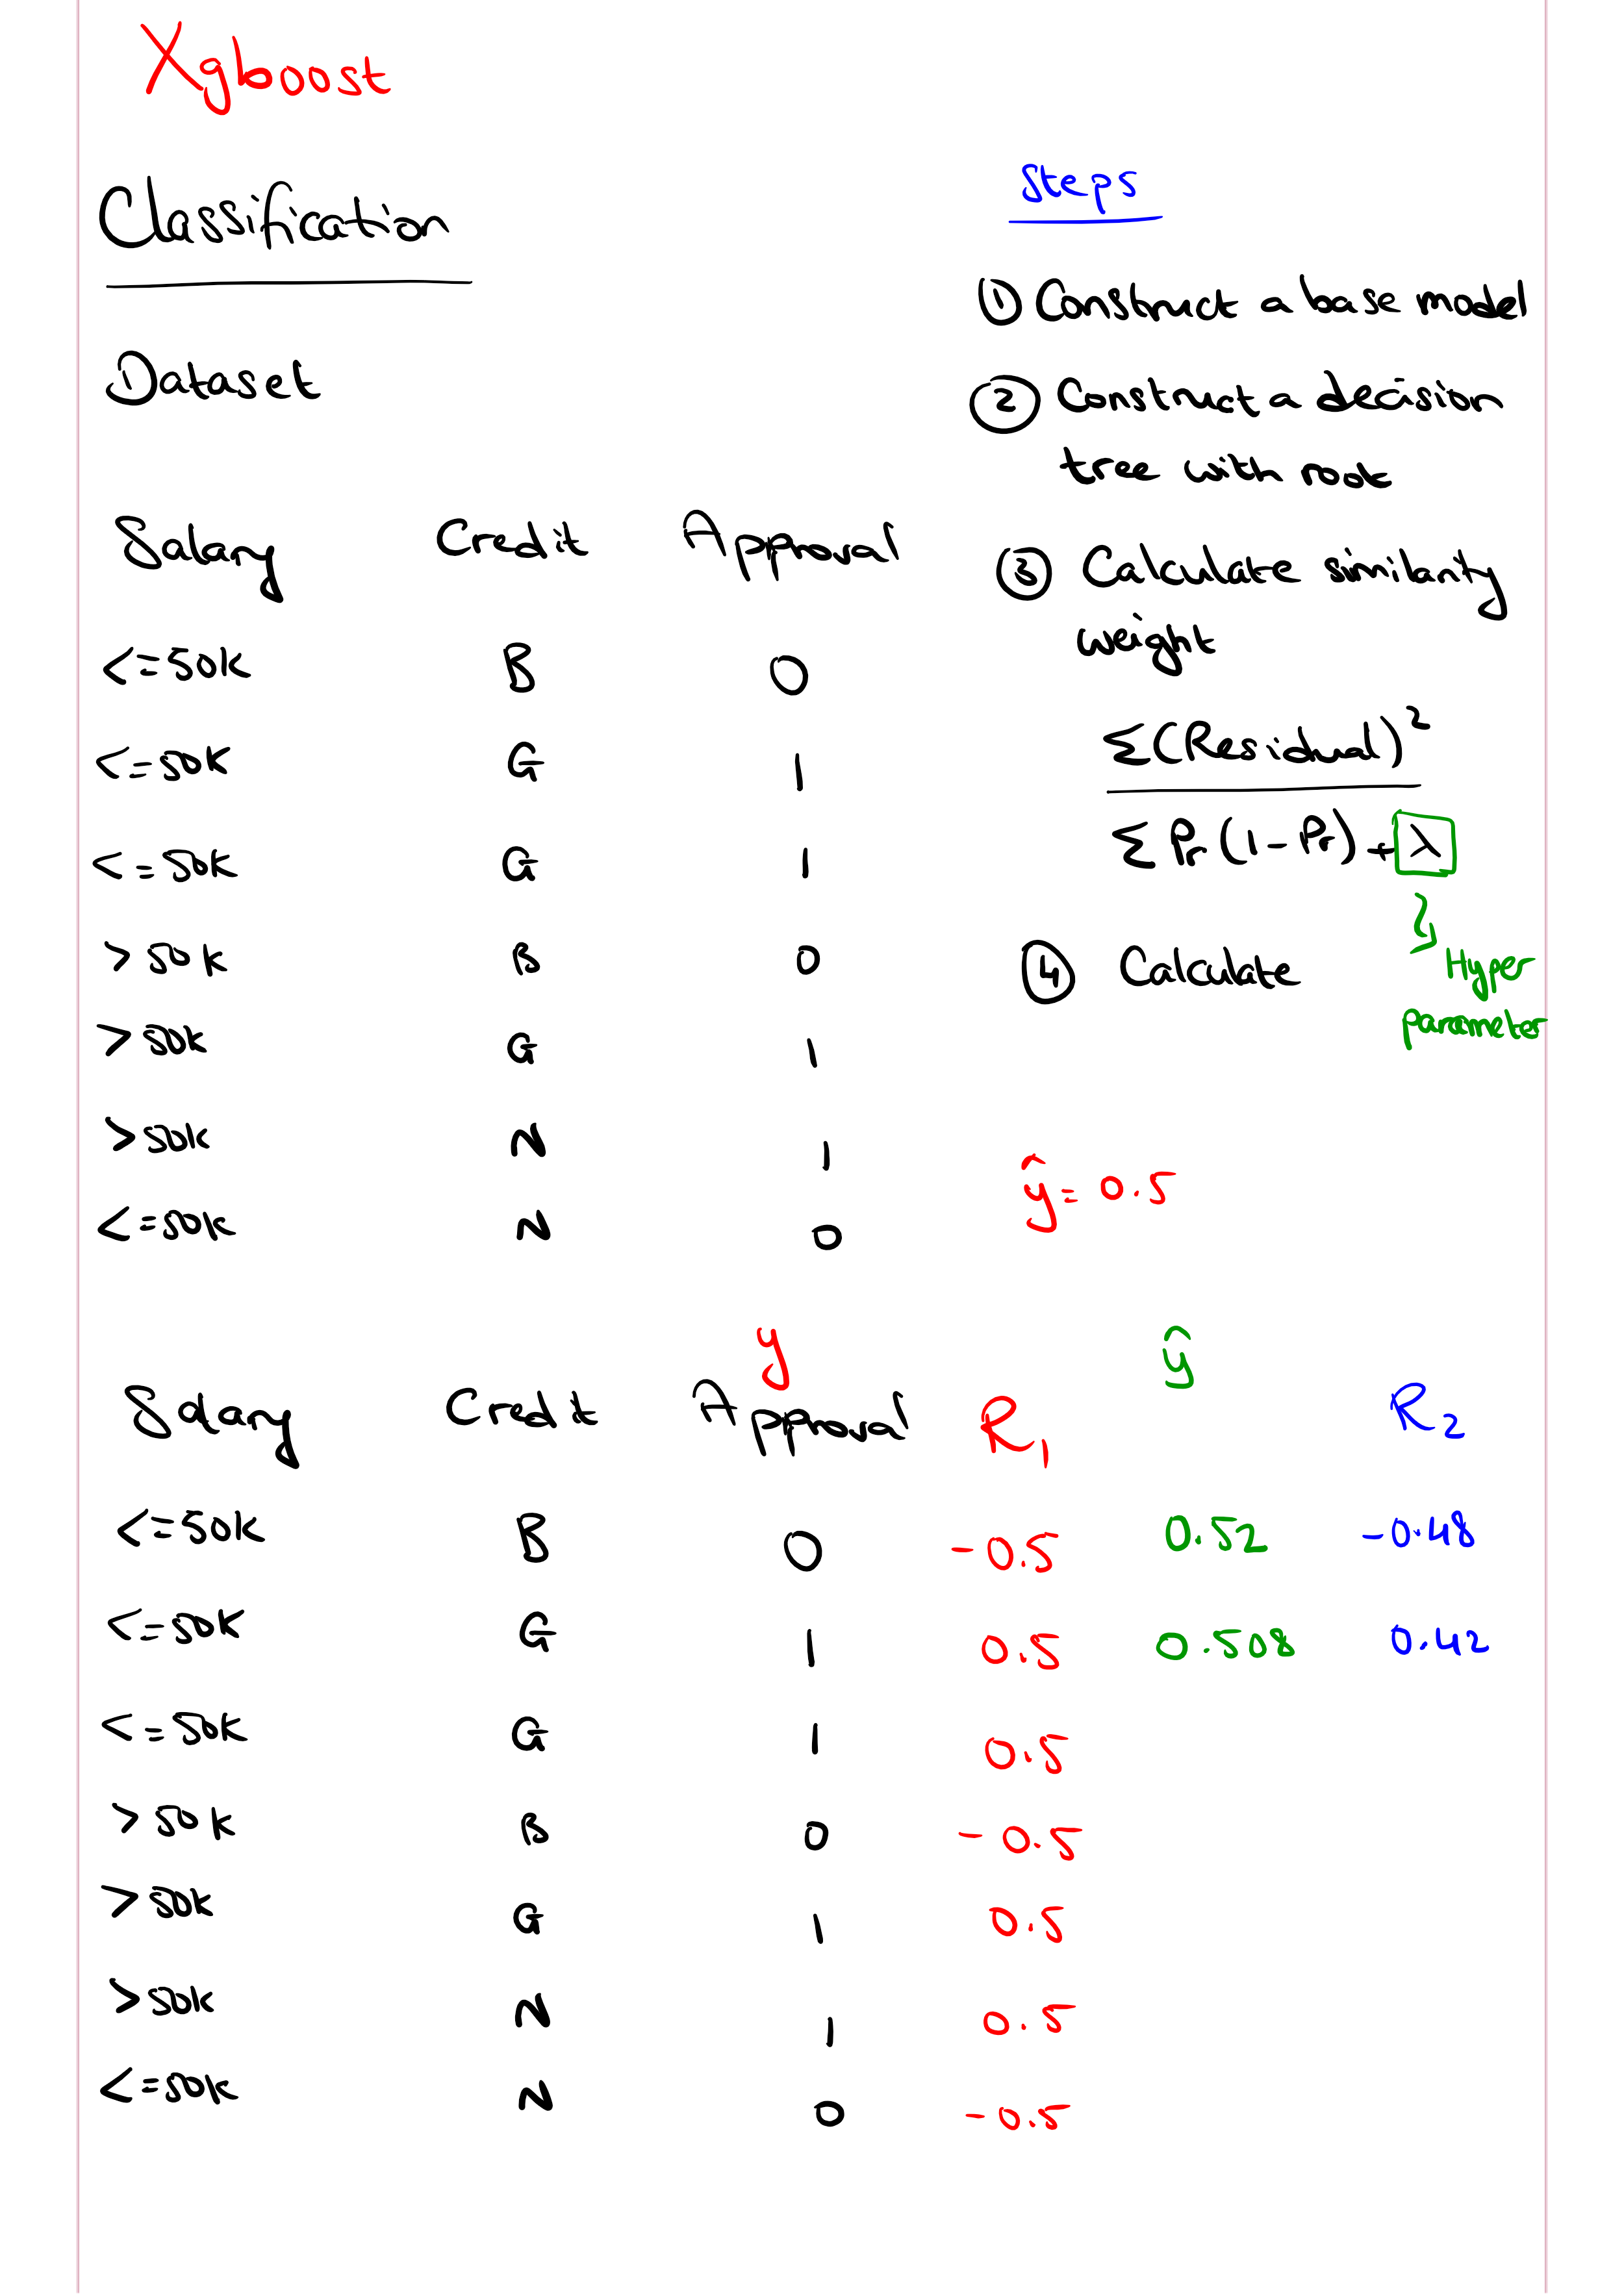 Xgboost
Classification
Dataset
Salary Credit Approval
<=50k B 0
<=50K G 1
<=50k G 1
>50k B 0
>50k G 1
>50k N 1
<=50k N 0
Steps
① Construct a base model
② Construct a decision
tree with root
③ Calculate similarity
weight
Σ(Residual)²
Σ Pr(1-Pr) + λ
Hyper
parameter
④ Calculate
ŷ = 0.5
y ŷ
Salary Credit Approval R₁ R₂
<=50k B 0 -0.5 0.52 -0.48
<=50K G 1 0.5 0.508 0.42
<=50k G 1 0.5
>50k B 0 -0.5
>50k G 1 0.5
>50k N 1 0.5
<=50k N 0 -0.5